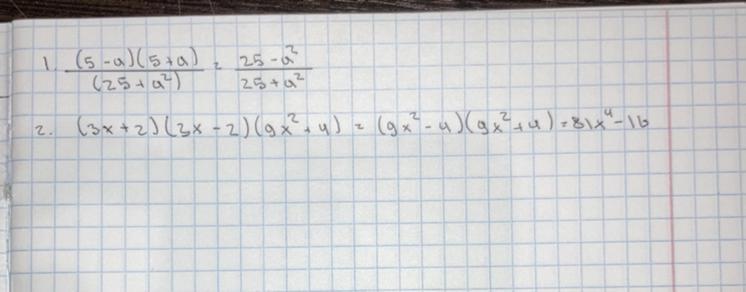 1. (5-a)(5+a)/(25+a²) = 25-a²/25+a²
2. (3x+2)(3x-2)(9x²+4) = (9x²-4)(9x²+4) = 81x⁴-16